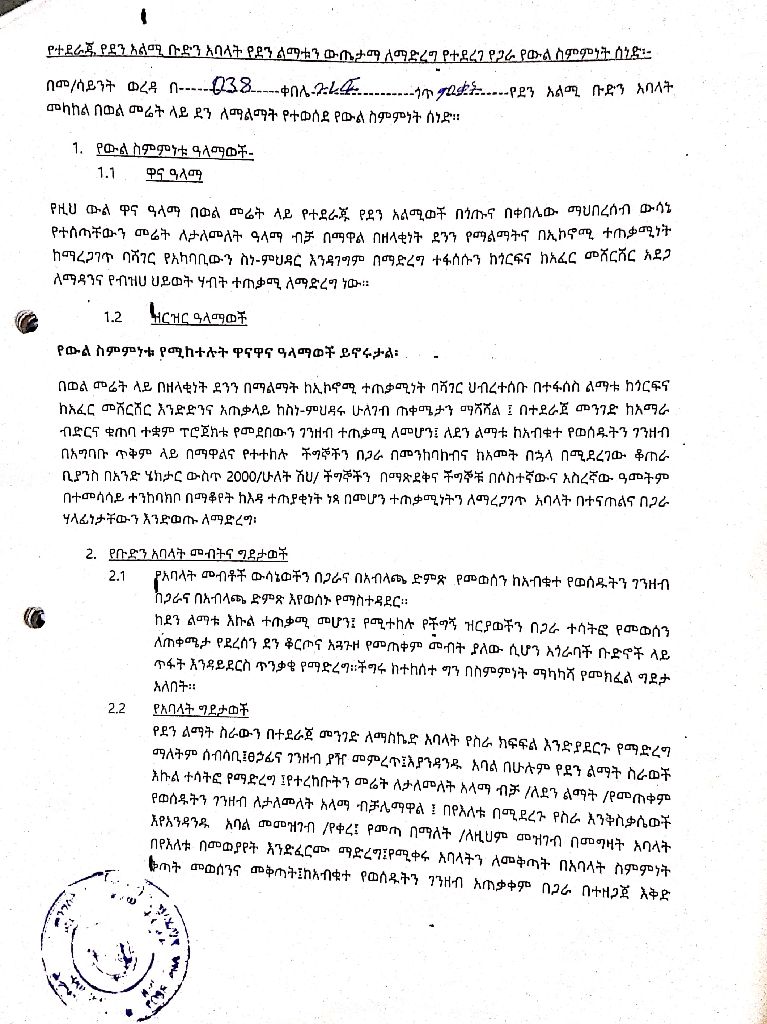 የተደራጁ የደን አልሚ ቡድን አባላት የደን ልማቱን ውጤታማ ለማድረግ የተደረገ የጋራ የውል ስምምነት ሰነድ፡-
በመ/ሳይንት ወረዳ በ-----038-----ቀበሌ----------ጎጥ----------የደን አልሚ ቡድን አባላት
መካከል በወል መሬት ላይ ደን ለማልማት የተወሰደ የውል ስምምነት ሰነድ።
1. የውል ስምምነቱ ዓላማወች-
1.1 ዋና ዓላማ
የዚህ ውል ዋና ዓላማ በወል መሬት ላይ የተደራጁ የደን አልሚወች በጎጡና በቀበሌው ማህበረሰብ ውሳኔ
የተሰጣቸውን መሬት ለታለመለት ዓላማ ብቻ በማዋል በዘላቂነት ደንን የማልማትና በኢኮኖሚ ተጠቃሚነት
ከማረጋገጥ ባሻገር የአካባቢውን ስነ-ምህዳር እንዳገግም በማድረግ ተፋሰሱን ከጎርፍና ከአፈር መሸርሸር አደጋ
ለማዳንና የብዝሀ ህይወት ሃብት ተጠቃሚ ለማድረግ ነው።
1.2 ዝርዝር ዓላማወች
የውል ስምምነቱ የሚከተሉት ዋናዋና ዓላማወች ይኖሩታል፡
በወል መሬት ላይ በዘላቂነት ደንን በማልማት ከኢኮኖሚ ተጠቃሚነት ባሻገር ህብረተሰቡ በተፋሰስ ልማቱ ከጎርፍና
ከአፈር መሸርሸር እንድድንና አጠቃላይ ከስነ-ምህዳሩ ሁለገብ ጠቀሜታን ማሻሻል ፤ በተደራጀ መንገድ ከአማራ
ብድርና ቁጠባ ተቋም ፕሮጀክቱ የመደበውን ገንዘብ ተጠቃሚ ለመሆን፤ ለደን ልማቱ ከአብቁተ የወሰዱትን ገንዘብ
በአግባቡ ጥቅም ላይ በማዋልና የተተከሉ ችግኞችን በጋራ በመንከባከብና ከአመት በኋላ በሚደረገው ቆጠራ
ቢያንስ በአንድ ሄክታር ውስጥ 2000/ሁለት ሽህ/ ችግኞችን በማጽደቅና ችግኞቹ በሶስተኛውና አስረኛው ዓመትም
በተመሳሳይ ተንከባክቦ በማቆየት ከእዳ ተጠያቂነት ነጻ በመሆን ተጠቃሚነትን ለማረጋገጥ አባላት በተናጠልና በጋራ
ሃላፊነታቸውን እንድወጡ ለማድረግ፡
2. የቡድን አባላት መብትና ግደታወች
2.1 የአባላት መብቶች ውሳኔወችን በጋራና በአብላጫ ድምጽ የመወሰን ከአብቁተ የወሰዱትን ገንዘብ
በጋራና በአብላጫ ድምጽ እየወሰኑ የማስተዳደር።
ከደን ልማቱ እኩል ተጠቃሚ መሆን፤ የሚተከሉ የችግኝ ዝርያወችን በጋራ ተሳትፎ የመወሰን
ለጠቀሜታ የደረሰን ደን ቆርጦና አጓጉዞ የመጠቀም መብት ያለው ሲሆን አጎራባች ቡድኖች ላይ
ጥፋት እንዳይደርስ ጥንቃቄ የማድረግ።ችግሩ ከተከሰተ ግን በስምምነት ማካካሻ የመክፈል ግደታ
አለበት።
2.2 የአባላት ግደታወች
የደን ልማት ስራውን በተደራጀ መንገድ ለማስኬድ አባላት የስራ ክፍፍል እንድያደርጉ የማድረግ
ማለትም ሰብሳቢ፤ፀኃፊና ገንዘብ ያዥ መምረጥ፤እያንዳንዱ አባል በሁሉም የደን ልማት ስራወች
እኩል ተሳትፎ የማድረግ ፤የተረከቡትን መሬት ለታለመለት አላማ ብቻ /ለደን ልማት /የመጠቀም
የወሰዱትን ገንዘብ ለታለመለት አላማ ብቻሌማዋል ፤ በየእለቱ በሚደረጉ የስራ እንቅስቃሴወች
እየአንዳንዱ አባል መመዝገብ /የቀረ፤ የመጣ በማለት /ለዚህም መዝገብ በመግዛት አባላት
በየእለቱ በመወያየት እንድፈርሙ ማድረግ፤የሚቀሩ አባላትን ለመቅጣት በአባላት ስምምነት
ቅጣት መወሰንና መቅጣት፤ከአብቁተ የወሰዱትን ገንዘብ አጠቃቀም በጋራ በተዘጋጀ እቅድ